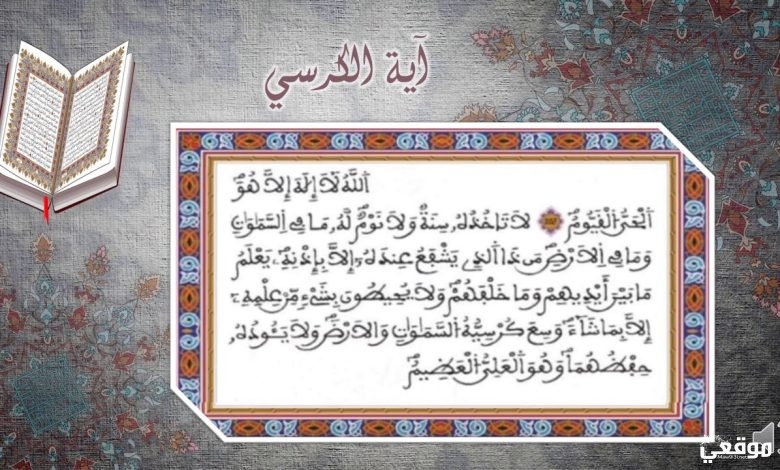 آية الكرسي
اَللَّهُ لَا إِلَٰهَ إِلَّا هُوَ
اَلْحَيُّ الْقَيُّومُ لَا تَاخُذُهُۥ سِنَةٌ وَلَا نَوْمٌ لَّهُۥ مَا فِي اِلسَّمَٰوَٰتِ
وَمَا فِي اِلَارْضِ مَن ذَا اَلذِي يَشْفَعُ عِندَهُۥ إِلَّا بِإِذْنِهِۦ يَعْلَمُ
مَا بَيْنَ أَيْدِيهِمْ وَمَا خَلْفَهُمْ وَلَا يُحِيطُونَ بِشَيْءٍ مِّنْ عِلْمِهِۦ
إِلَّا بِمَا شَآءَ وَسِعَ كُرْسِيُّهُ السَّمَٰوَٰتِ وَالَارْضَ وَلَا يَـُٔودُهُۥ
حِفْظُهُمَا وَهُوَ اَلْعَلِيُّ الْعَظِيمُ
موقعي